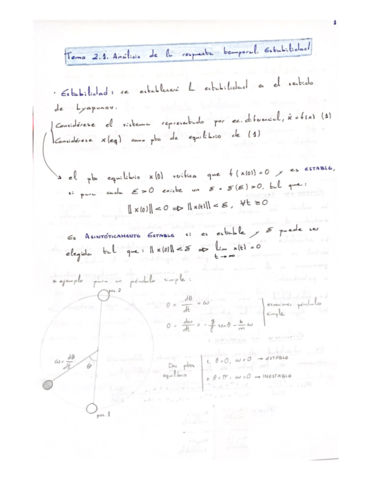 1
Tema 2.1. Análisis de la respuesta temporal. Estabilidad
· Estabilidad: se establecerá la estabilidad en el sentido
de Lyapunov.
Considérese el sistema representado por ec. diferencial, ẋ = f(x) (1)
Considérese x(eq) como pto de equilibrio de (1)
el pto equilibrio x(0) verifica que f(x(0)) = 0, es ESTABLE,
si para cada ε > 0 existe un δ = δ(ε) > 0, tal que:
||x(0)|| < δ ⇒ ||x(t)|| < ε, ∀t ≥ 0
Es ASINTÓTICAMENTE ESTABLE si es estable y δ puede ser
elegida tal que: ||x(0)|| < δ ⇒ lim x(t) = 0
t→∞
ejemplo para un péndulo simple:
pos. 2
θ̇ = dθ/dt = ω
ecuaciones péndulo
simple
ω = dθ/dt
θ
Dos ptos
equilibrio
θ = 0, ω = 0 → ESTABLE
θ = π, ω = 0 → INESTABLE
pos. 1